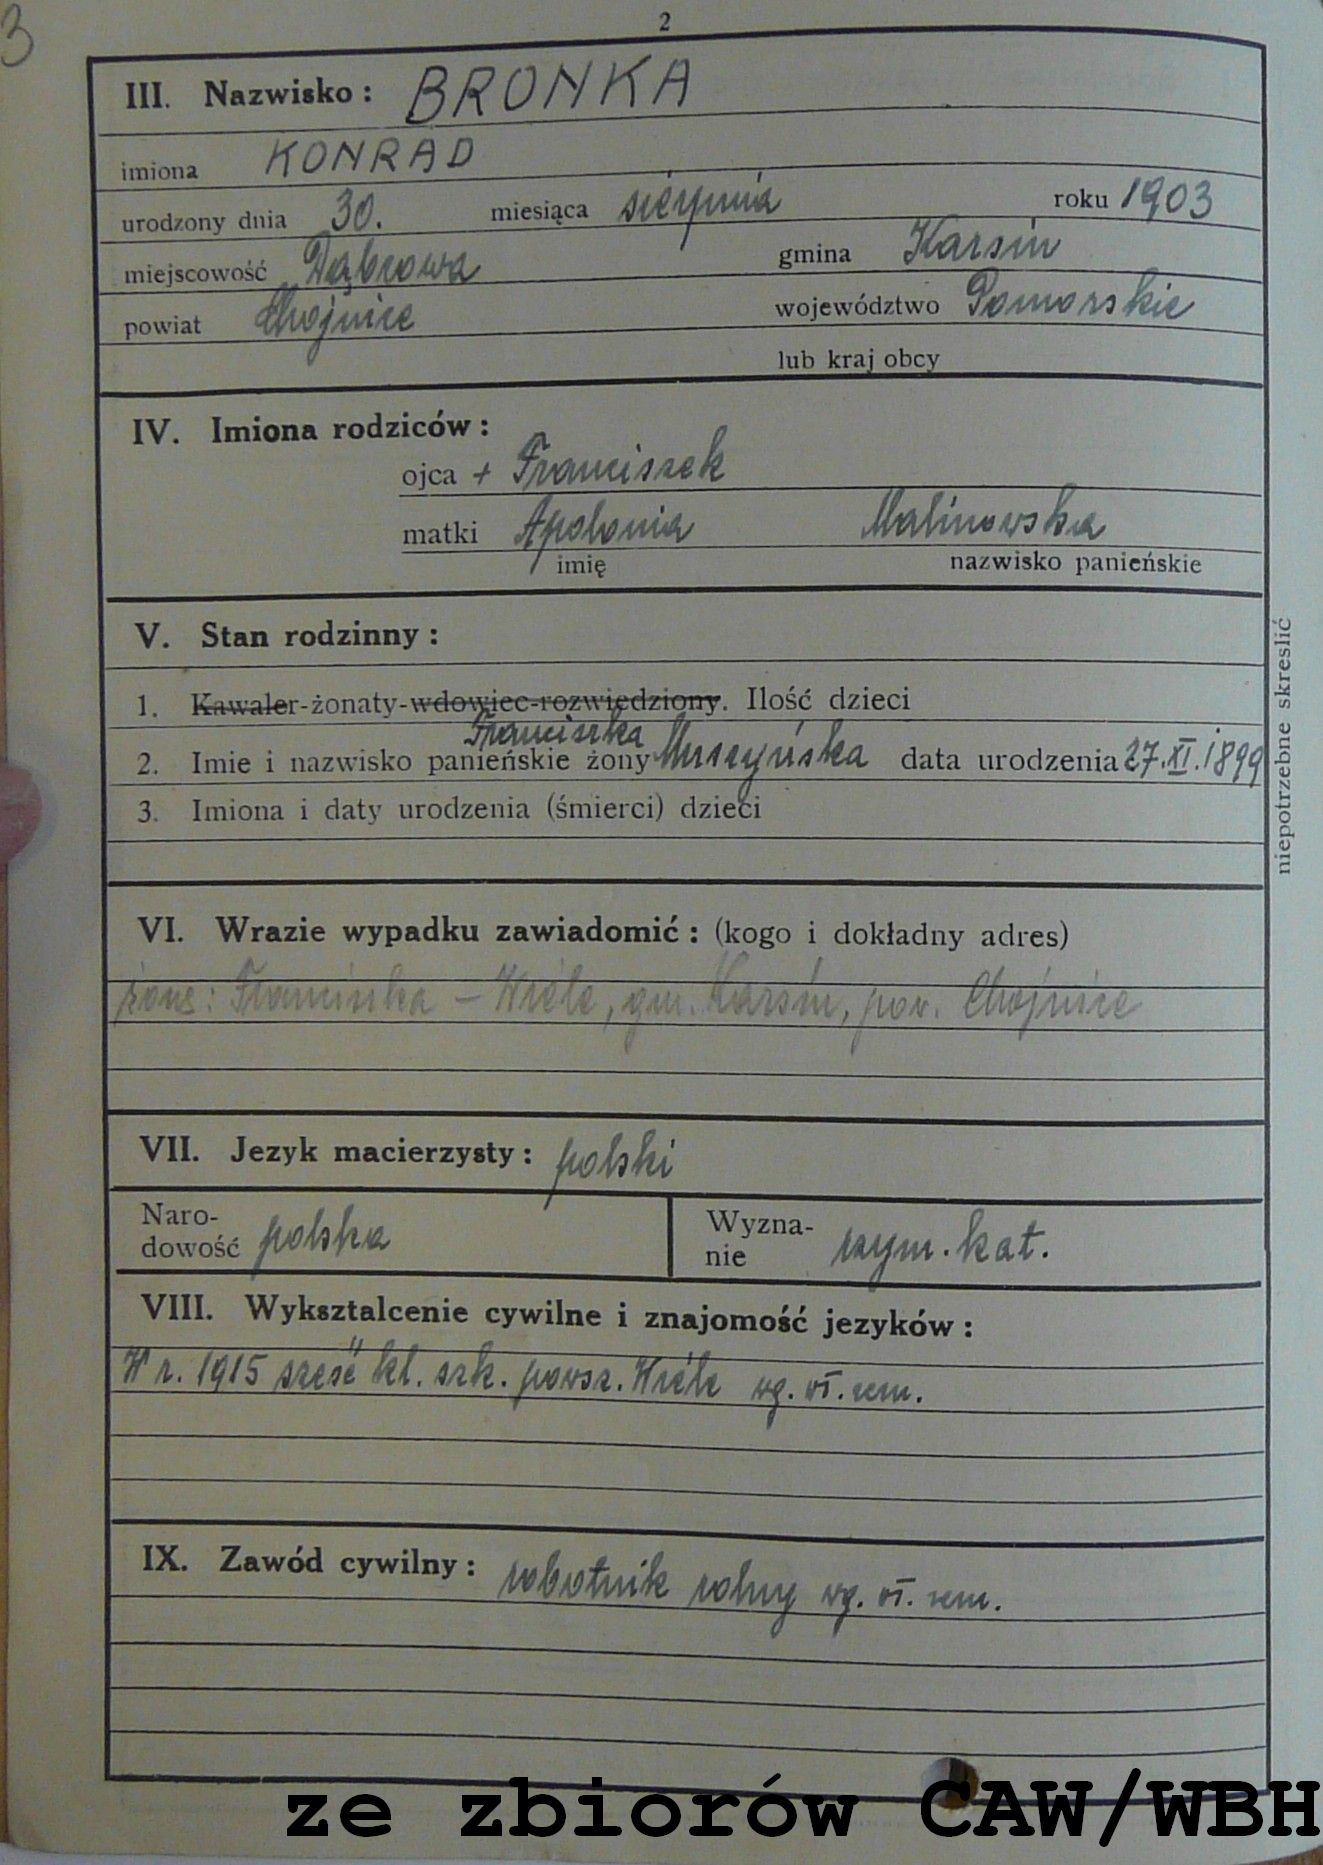 3
2
III. Nazwisko: BRONKA
imiona KONRAD
urodzony dnia 30. miesiąca sierpnia roku 1903
miejscowość Dąbrowa gmina Karsin
powiat Chojnice województwo Pomorskie
lub kraj obcy
IV. Imiona rodziców:
ojca + Franciszek
matki Apolonia Malinowska
imię nazwisko panieńskie
V. Stan rodzinny:
1. Kawaler-żonaty-wdowiec-rozwiedziony. Ilość dzieci
Franciszka
2. Imie i nazwisko panieńskie żony Muszyńska data urodzenia 27.XI.1899
3. Imiona i daty urodzenia (śmierci) dzieci
niepotrzebne skreslić
VI. Wrazie wypadku zawiadomić: (kogo i dokładny adres)
żonę: Franciszka – Wiele, gm. Karsin, pow. Chojnice
VII. Jezyk macierzysty: polski
Naro-
dowość polska
Wyzna-
nie rzym. kat.
VIII. Wyksztalcenie cywilne i znajomość jezyków:
W r. 1915 sześć kl. szk. powsz. Wiele wg. zezn.
IX. Zawód cywilny: robotnik rolny wg. zezn.
ze zbiorów CAW/WBH